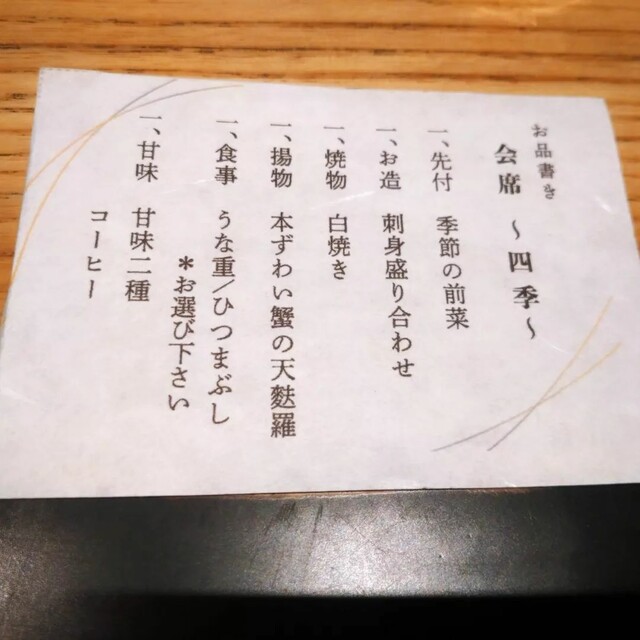 お品書き
会席 〜四季〜
一、先付 季節の前菜
一、お造 刺身盛り合わせ
一、焼物 白焼き
一、揚物 本ずわい蟹の天麩羅
一、食事 うな重/ひつまぶし
＊お選び下さい
一、甘味 甘味二種
コーヒー